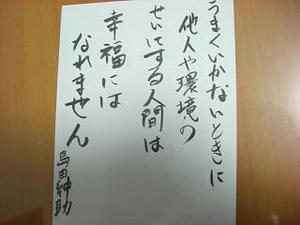 うまくいかないときに
他人や環境の
せいにする人間は
幸福には
なれません
島田紳助